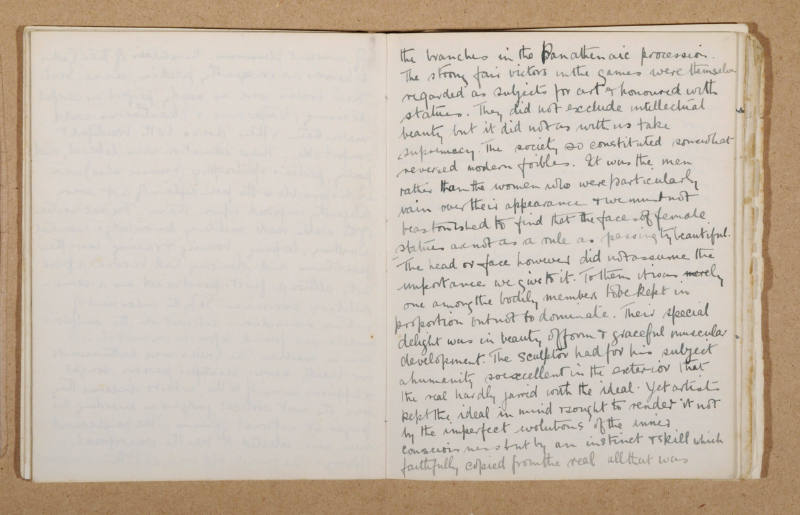 the branches in the Panathenaic procession.
The strong fair victors in the games were themselves
regarded as subjects for art & honoured with
statues. They did not exclude intellectual
beauty but it did not as with us take
supremacy. The society so constituted somewhat
reversed modern foibles. It was the men
rather than the women who were particularly
vain over their appearance & we must not
be astonished to find that the faces of female
statues are not as a rule as passingly beautiful.
The head or face however did not assume the
importance we give to it. To them it was merely
one among the bodily members to be kept in
proportion but not to dominate. Their special
delight was in beauty of form & graceful muscular
development. The sculptor had for his subject
a humanity so excellent in the exterior that
the real hardly jarred with the ideal. Yet artists
kept the ideal in mind & sought to render it not
by the imperfect evolutions of the inner
consciousness but by an instinct & skill which
faithfully copied from the real all that was